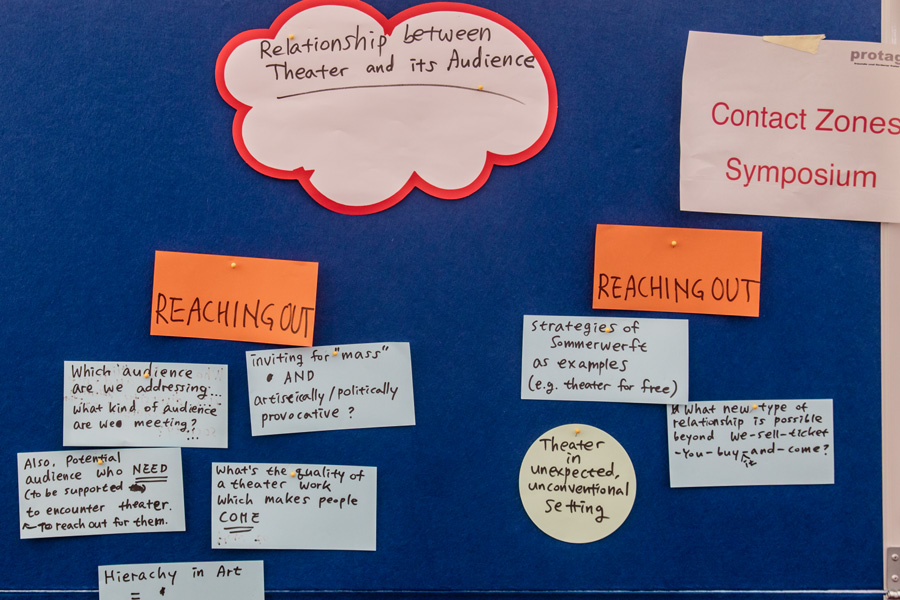 Relationship between
Theater and its Audience
protag
Contact Zones
Symposium
REACHING OUT
Which audience
are we addressing...
what kind of audience
are we meeting?
...
inviting for "mass"
• AND
artistically/politically
provocative ?
Also, potential
audience who NEED
(to be supported
to encounter theater.
to reach out for them.
What's the quality of
a theater work
which makes people
COME
Hierachy in Art
REACHING OUT
strategies of
Sommerwerft
as examples
(e.g. theater for free)
Theater
in
unexpected,
unconventional
setting
What new type of
relationship is possible
beyond we-sell-ticket
-you-buy-and-come?
it